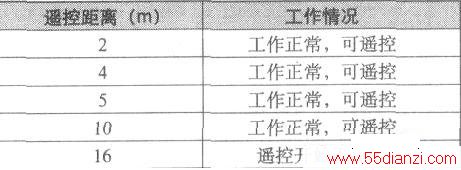 遥控距离（m） 工作情况
2 工作正常，可遥控
4 工作正常，可遥控
5 工作正常，可遥控
10 工作正常，可遥控
16 遥控
www.55dianzi.com